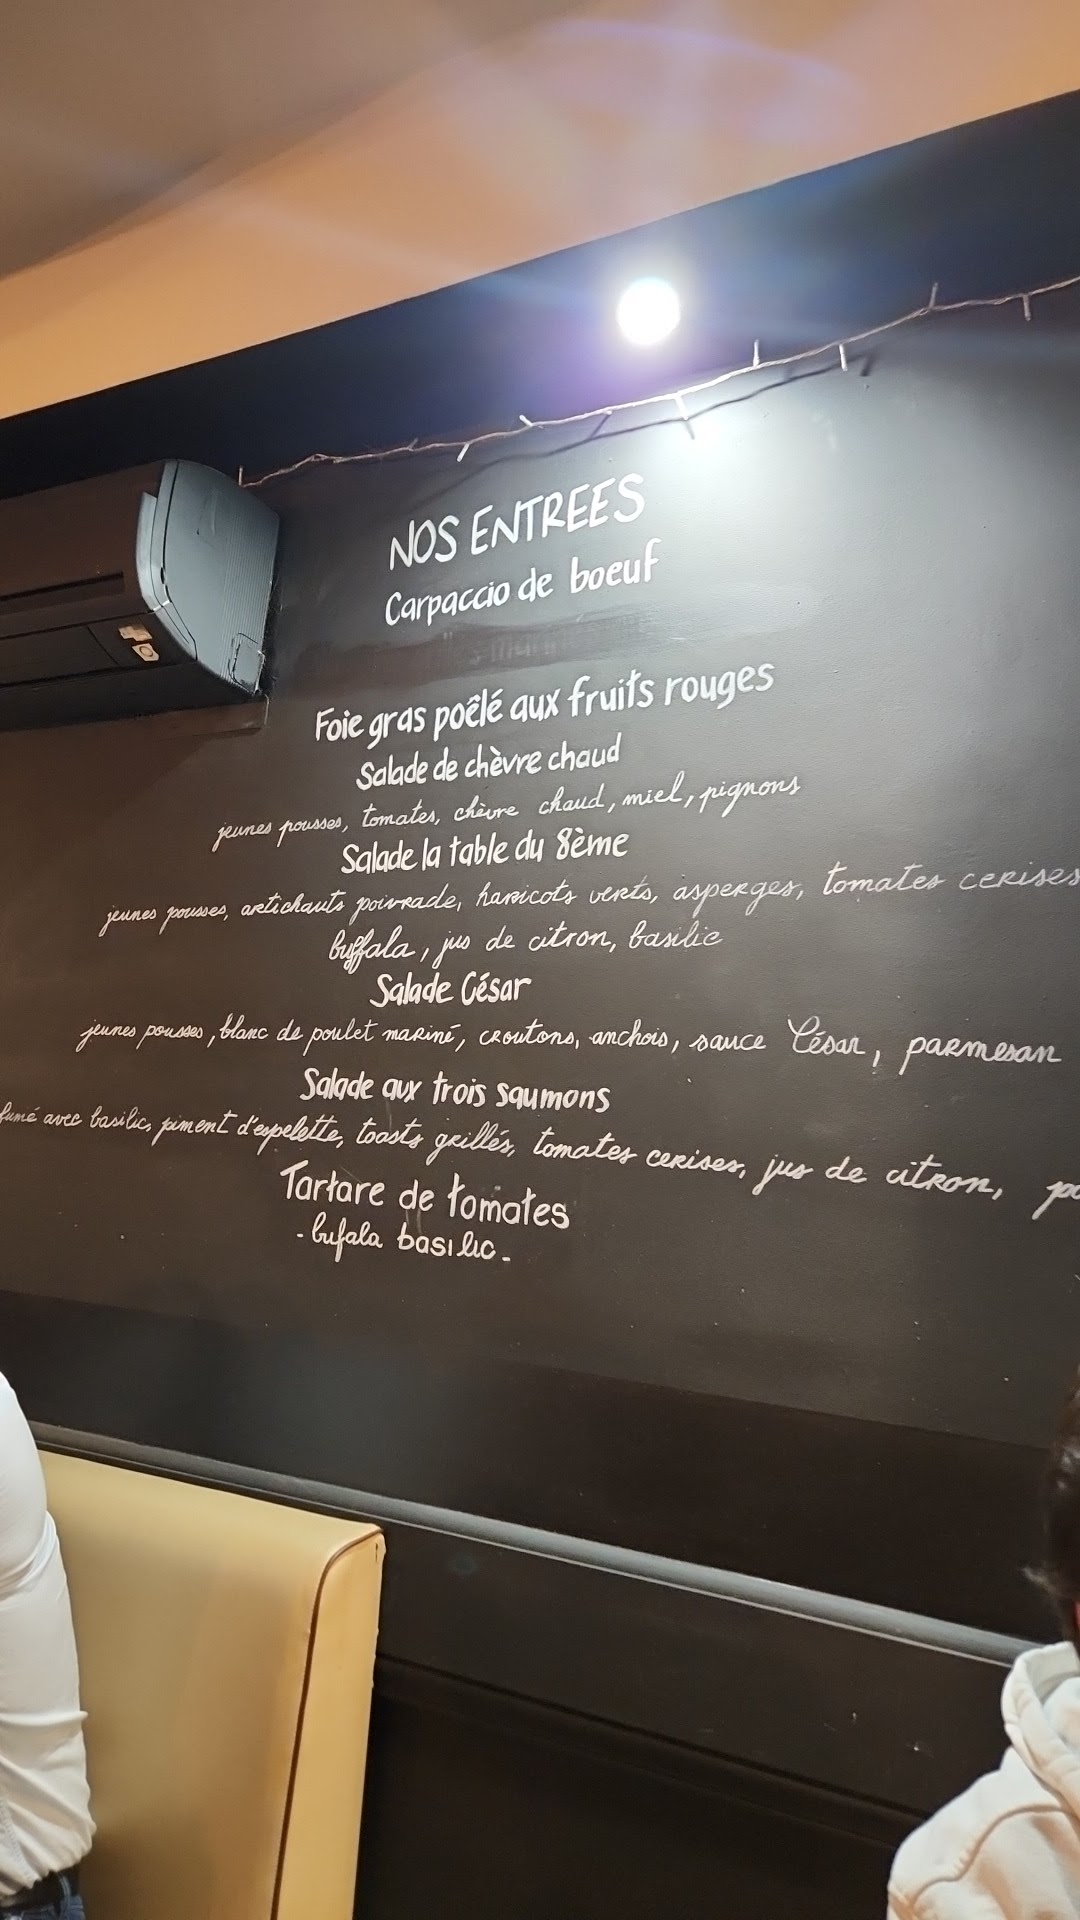 NOS ENTREES
Carpaccio de boeuf
Foie gras poêlé aux fruits rouges
Salade de chèvre chaud
jeunes pousses, tomates, chèvre chaud, miel, pignons
Salade la table du 8ème
jeunes pousses, artichauts poivrade, haricots verts, asperges, tomates cerises
buffala, jus de citron, basilic
Salade César
jeunes pousses, blanc de poulet mariné, croutons, anchois, sauce César, parmesan
Salade aux trois saumons
fumé avec basilic, piment d'espelette, toasts grillés, tomates cerises, jus de citron,
Tartare de tomates
- bufala basilic -